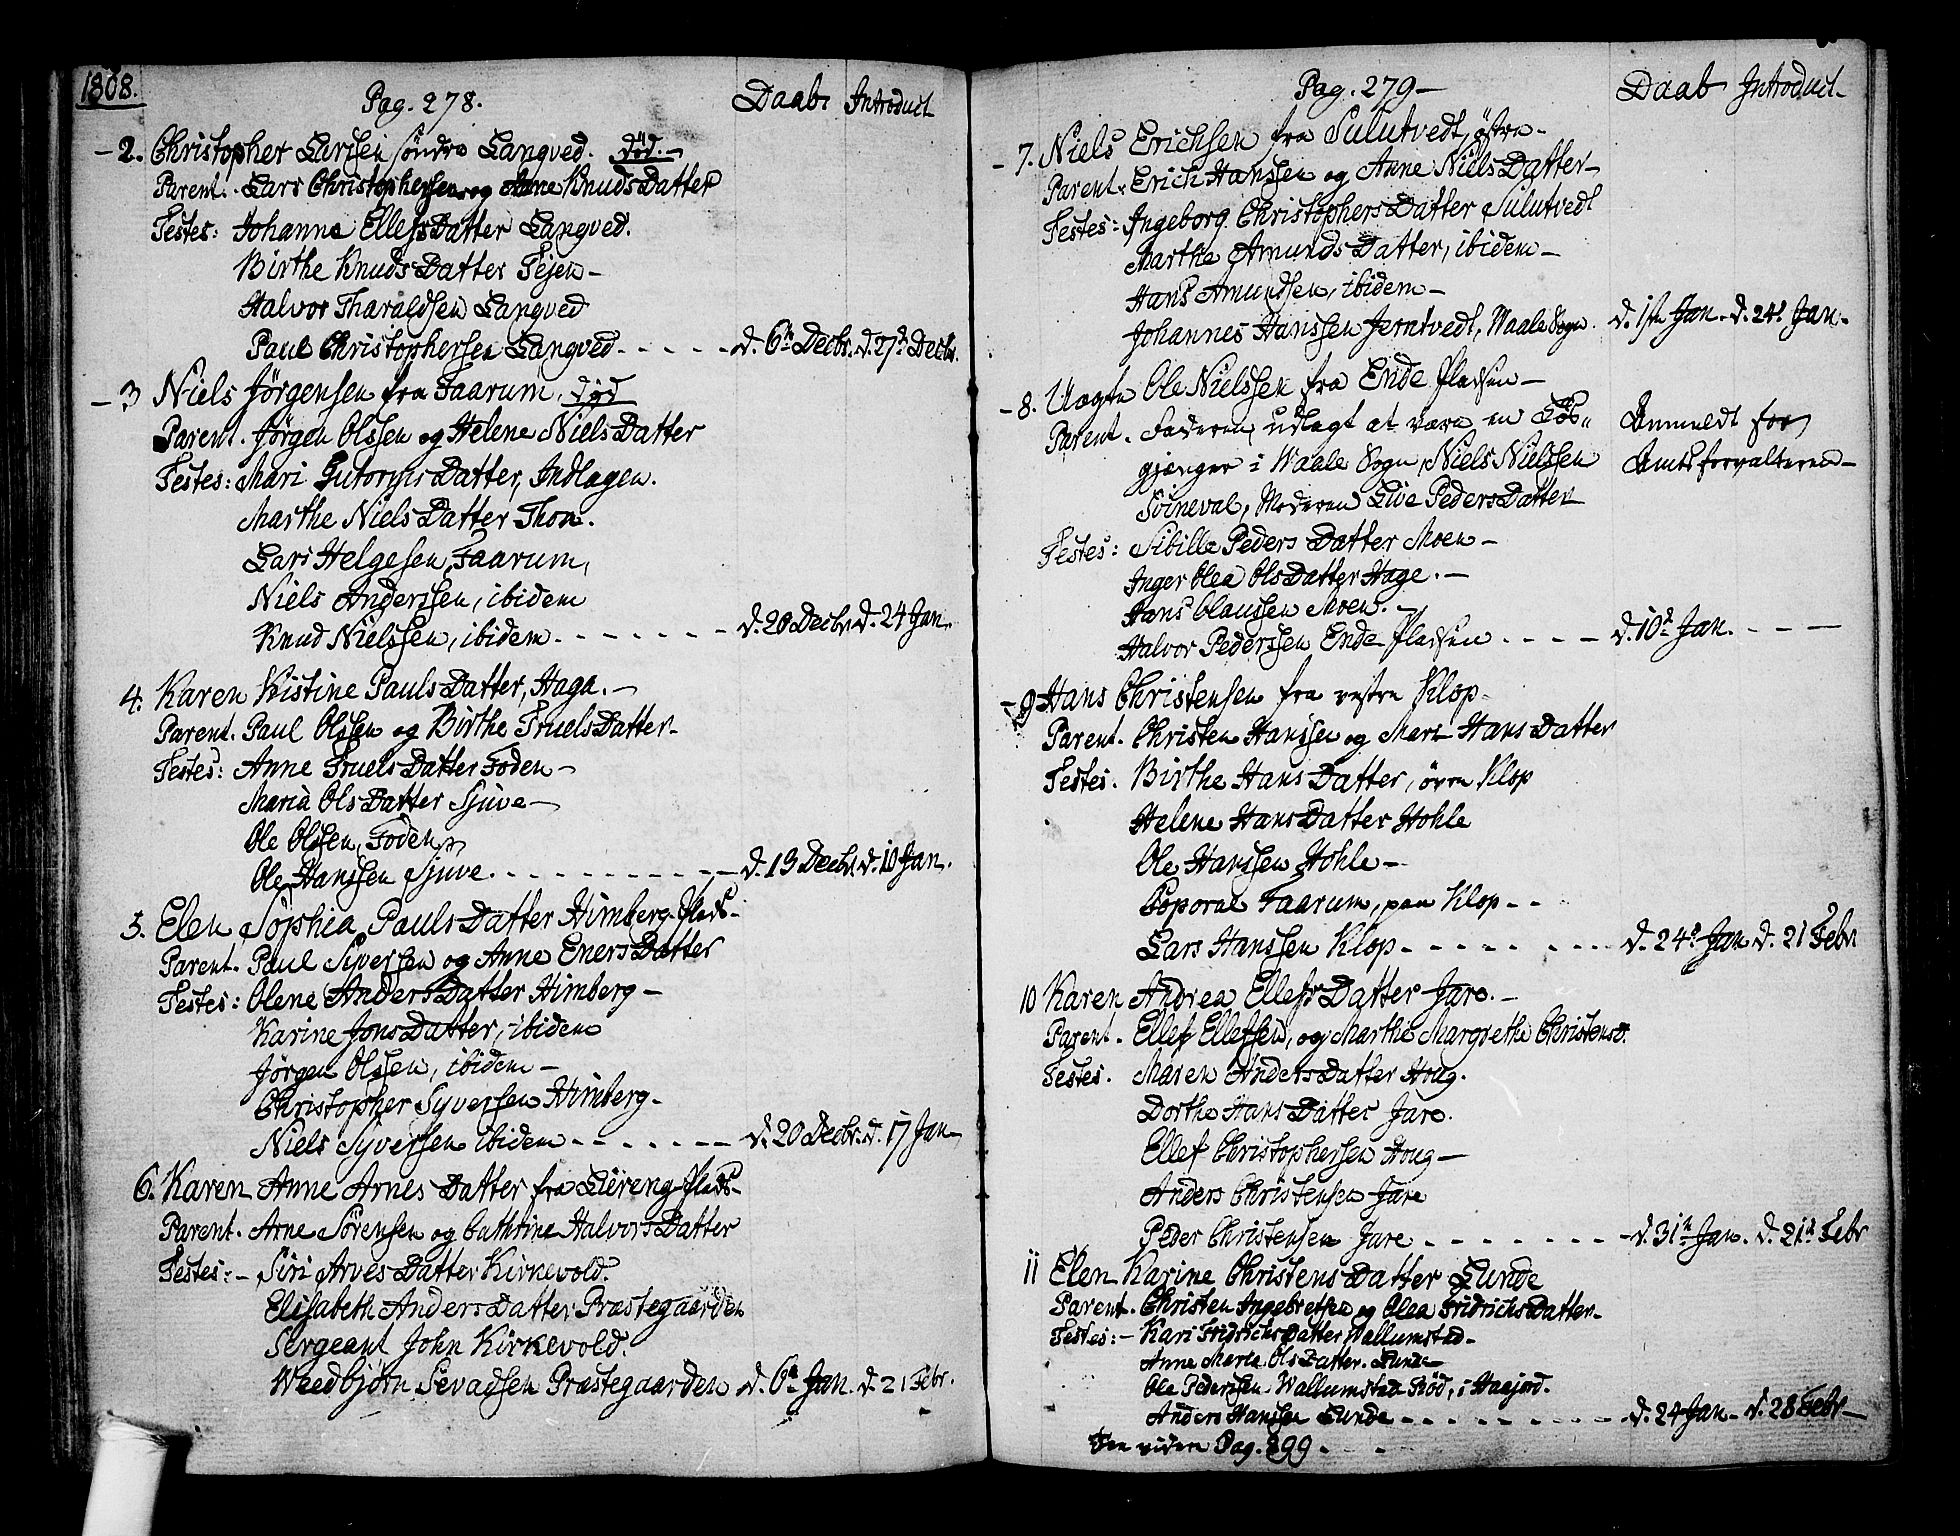 1808.
Pag. 278. Daab. Introduct
- 2. Christopher Larssen søndre Langved. død. -
Parent. Lars Christophersen og Anne KnudsDatter
Testes: Johanne EllefsDatter Langved.
Birthe KnudsDatter Tejen -
Halvor Tharaldsen Langved
Paul Christophersen Langved - - - - - d. 6te Decbr. d. 27de Decbr.
- 3 Niels Jørgensen fra Faarum. død
Parent. Jørgen Olssen og Helene NielsDatter
Testes: Mari GutormsDatter, Indlagen.
Marthe NielsDatter Thon.
Lars Helgesen, Faarum,
Niels Anderssen, ibidem
Knud Nielssen, ibidem - - - - - - - d. 20 Decbr. d. 24 Jan.
4. Karen Kistine PaulsDatter, Haga. -
Parent. Paul Olssen og Birthe TruelsDatter -
Testes: Anne TruelsDatter Foden -
Maria OlsDatter Sjuve -
Ole Olssen, Foden
Ole Hanssen Sjuve - - - - - - - - - - - d. 13 Decbr. d. 10 Jan.
5. Elen Sophia PaulsDatter Himberg Plads -
Parent. Paul Syversen og Anne EnersDatter
Testes: Olene AndersDatter Himberg -
Karine JonsDatter, ibidem
Jørgen Olssen, ibidem -
Christopher Syversen Himberg -
Niels Syverssen ibidem - - - - - - - d. 20 Decbr. d. 17 Jan -
6. Karen Anne ArnesDatter fra Liereng Plads -
Parent. Arne Sørensen og Cathrine HalvorsDatter
Testes: - Siri ArvesDatter Kirkevold.
Elisabeth AndersDatter Præstegaarden
Sergeant John Kirkevold.
Weedbjørn Sevadsen Præstegaarden d. 6te Jan. d. 21 Febr.
Pag. 279 - Daab Introduct -
- 7. Niels Erichsen fra Sulutvedt, østre -
Parent. Erich Hanssen og Anne NielsDatter -
Testes: Ingeborg ChristophersDatter Sulutvedt
Marthe AmundsDatter, ibidem -
Hans Amundsen, ibidem -
Johannes Hanssen Jerntvedt, Waale Sogn. d. 1ste Jan. d. 24de Jan -
- 8. Uægte Ole Nielssen fra Ende Pladsen -
Parent. Faderen, udlagt at være en Løs- Anmeldt for
gjænger i Waale Sogn, Niels Nielssen Amtsforvalteren -
Soineval, Moderen Live PedersDatter
Testes: Sibille PedersDatter Moen -
Inger Olea OlsDatter Hage. -
Hans Claussen Moen. -
Halvor Pederssen Ende Pladsen - - - - d. 10de Jan. - - - -
- 9 Hans Christensen fra vestre Klop -
Parent. Christen Hanssen og Mari HansDatter
Testes. Birthe HansDatter, øvre Klop
Helene HansDatter Hohle
Ole Hanssen Hohle -
Coporal Faarum, paa Klop - -
Lars Hanssen Klop - - - - - - - - - d. 24de Jan d. 21 Febr
10 Karen Andrea EllefsDatter Jare. -
Parent. Ellef Ellefsen, og Marthe Margrethe Christensd.
Testes. Maren AndersDatter Houg.
Dorthe HansDatter Jare.
Ellef Christophersen Houg -
Anders Christensen Jare
Peder Christensen Jare - - - - - - - - d. 31te Jan. d. 21de Febr
11 Elen Karine ChristensDatter Lunde
Parent. Christen Ingebretsen og Olea FridrichsDatter -
Testes: - Kari FridrichsDatter Wallumstad -
Anne Maria OlsDatter Lunde -
Ole Pederssen Wallumstad Rød, i Haajord.
Anders Hanssen Lunde - - - - - - - - - d. 24 Jan - d. 28 Febr -
See videre Pag. 299 -